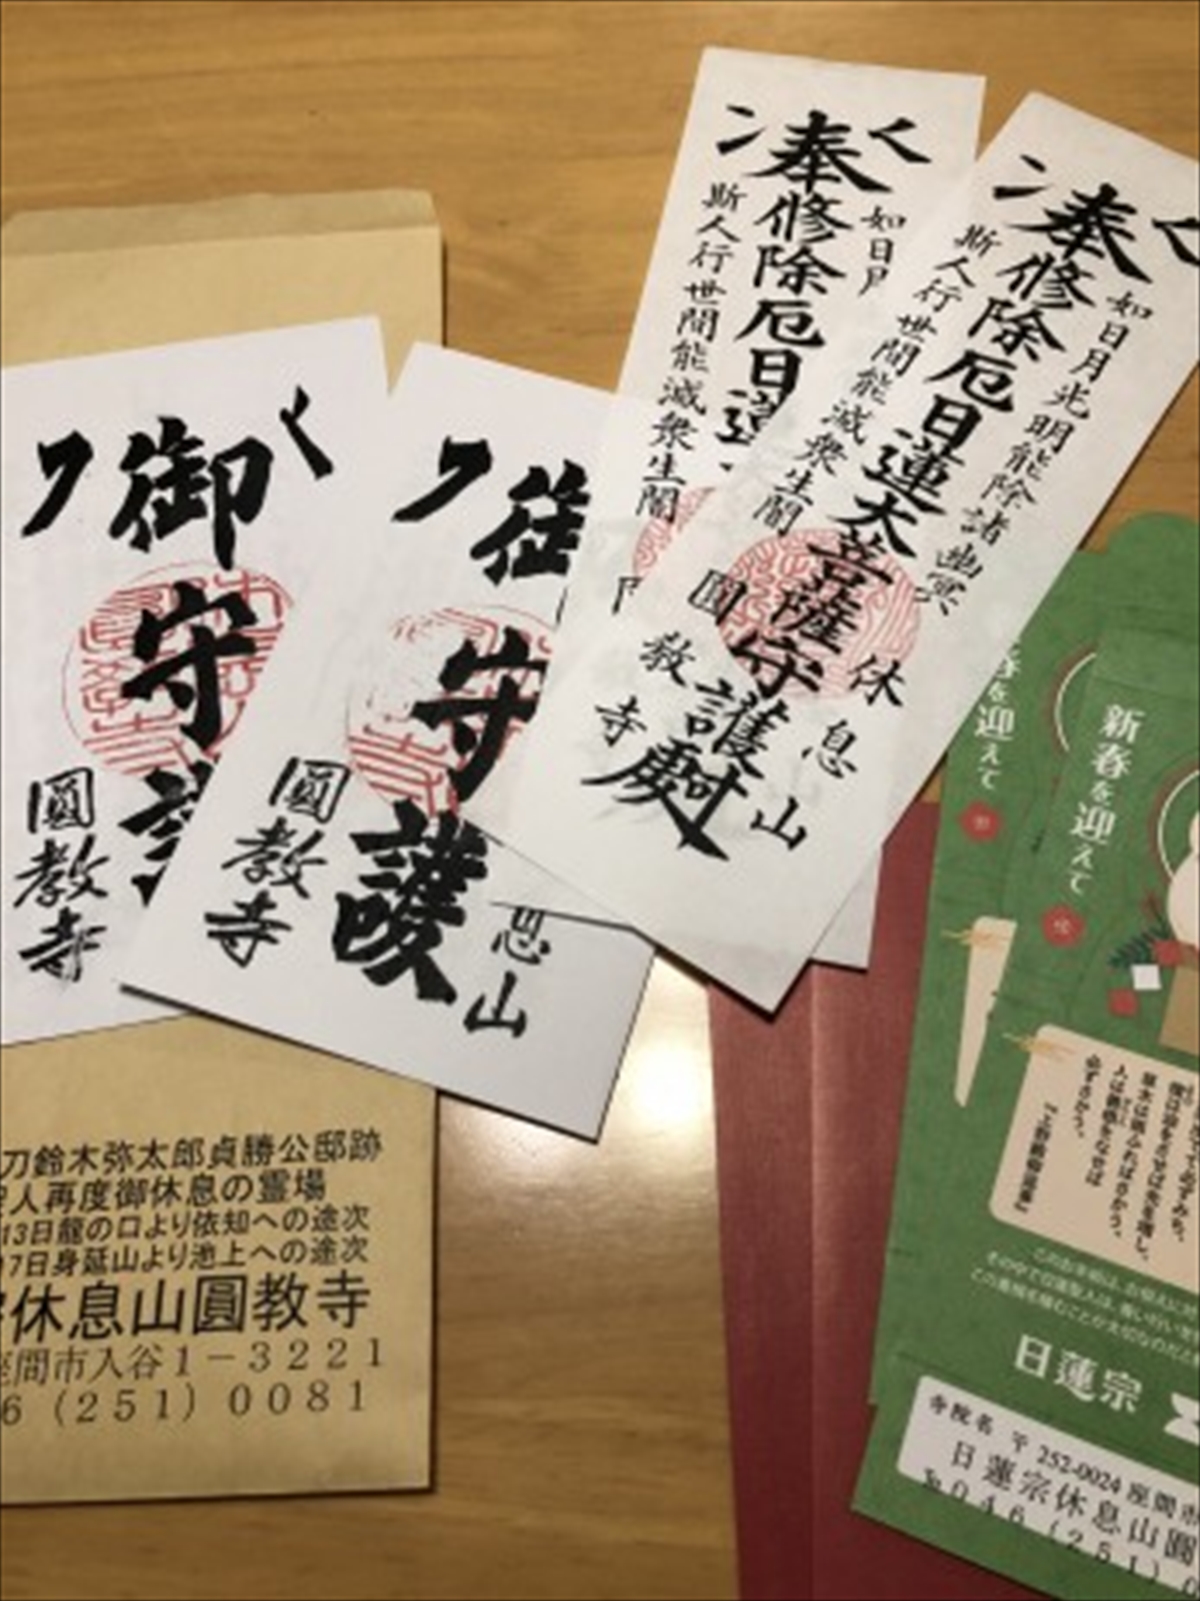 御守
圓教寺
御守護
圓教寺
息山
奉修除厄日蓮
如日月
斯人行世間能滅衆生闇
奉修除厄日蓮大菩薩守護
如日月光明能除諸幽冥
斯人行世間能滅衆生闇
休息山
圓教寺
刀鈴木弥太郎貞勝公邸跡
人再度御休息の霊場
13日龍の口より依知への途次
7日身延山より池上への途次
休息山圓教寺
座間市入谷1-3221
6(251)0081
春を迎えて
新春を迎えて
人は善根をなせば
必ずさかう。
『上野殿御返事』
日蓮宗
寺院名 〒252-0024 座間市
日蓮宗休息山圓
℡046(251)0